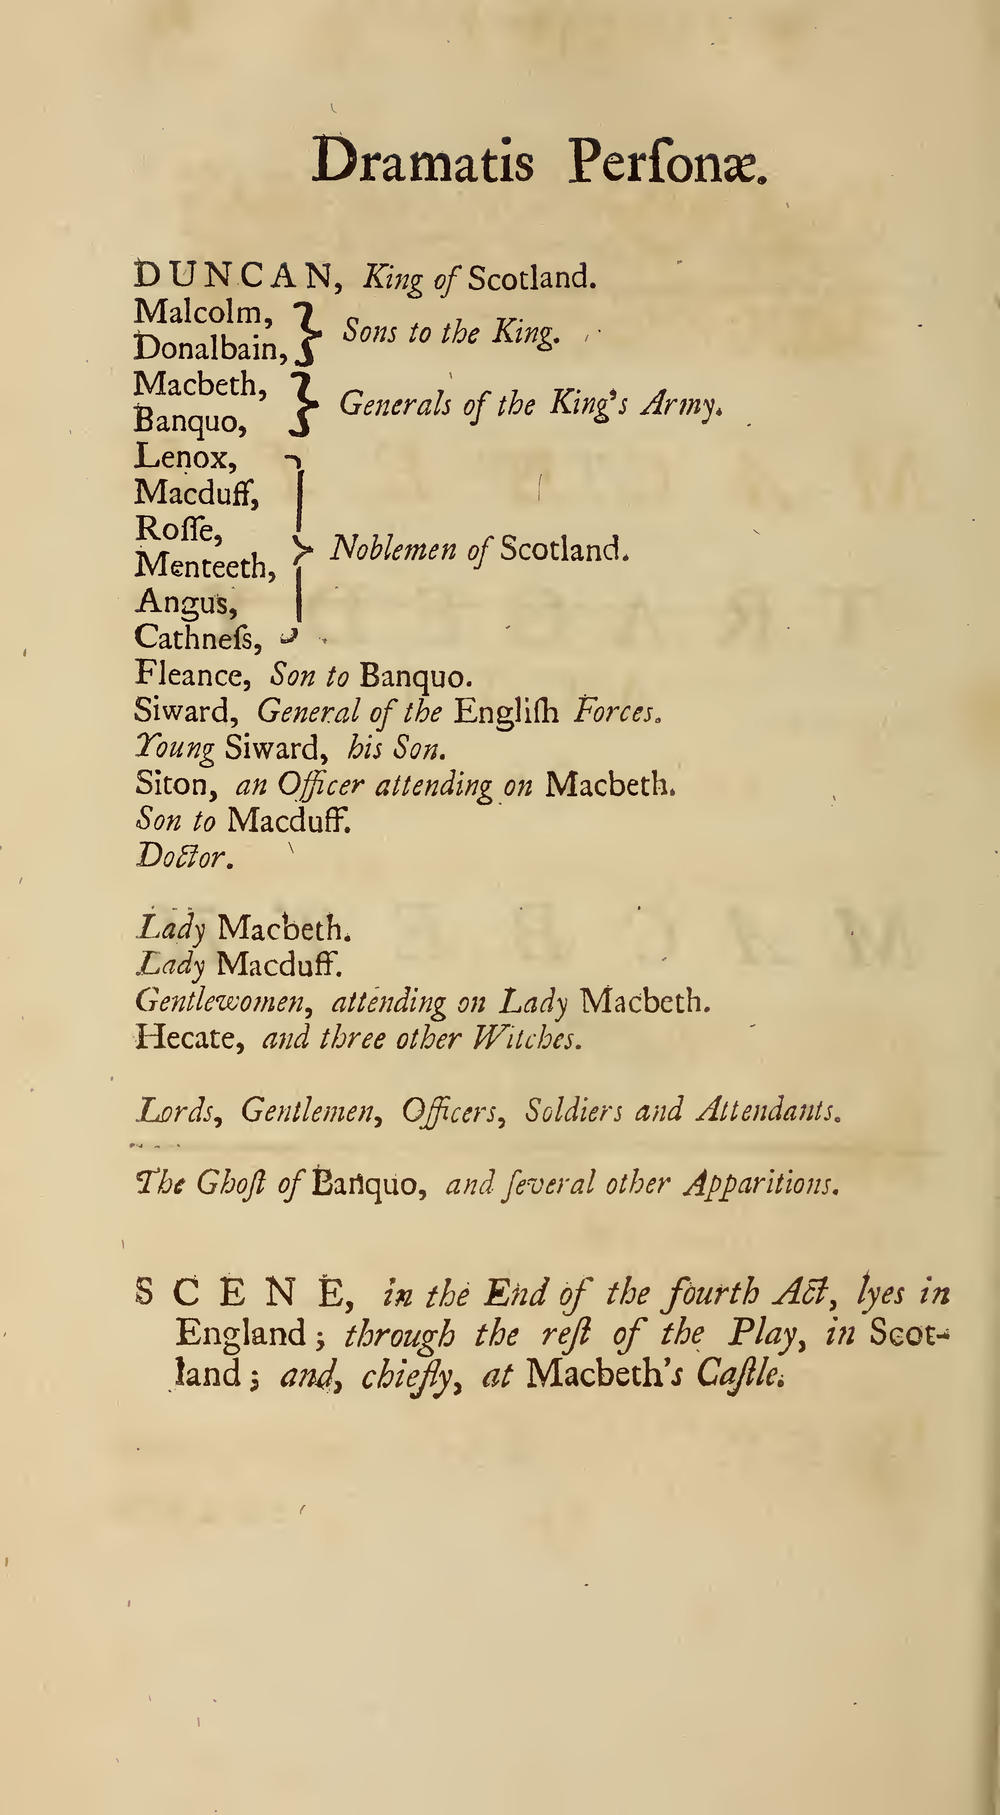 Dramatis Perſonæ.
DUNCAN, King of Scotland.
Malcolm,
Donalbain,
Sons to the King.
Macbeth,
Banquo,
Generals of the King's Army.
Lenox,
Macduff,
Roſſe,
Menteeth,
Angus,
Cathneſs,
Noblemen of Scotland.
Fleance, Son to Banquo.
Siward, General of the Engliſh Forces.
Young Siward, his Son.
Siton, an Officer attending on Macbeth.
Son to Macduff.
Doctor.
Lady Macbeth.
Lady Macduff.
Gentlewomen, attending on Lady Macbeth.
Hecate, and three other Witches.
Lords, Gentlemen, Officers, Soldiers and Attendants.
The Ghoſt of Banquo, and ſeveral other Apparitions.
SCENE, in the End of the fourth Act, lyes in
England; through the reſt of the Play, in Scot-
land; and, chiefly, at Macbeth's Caſtle.